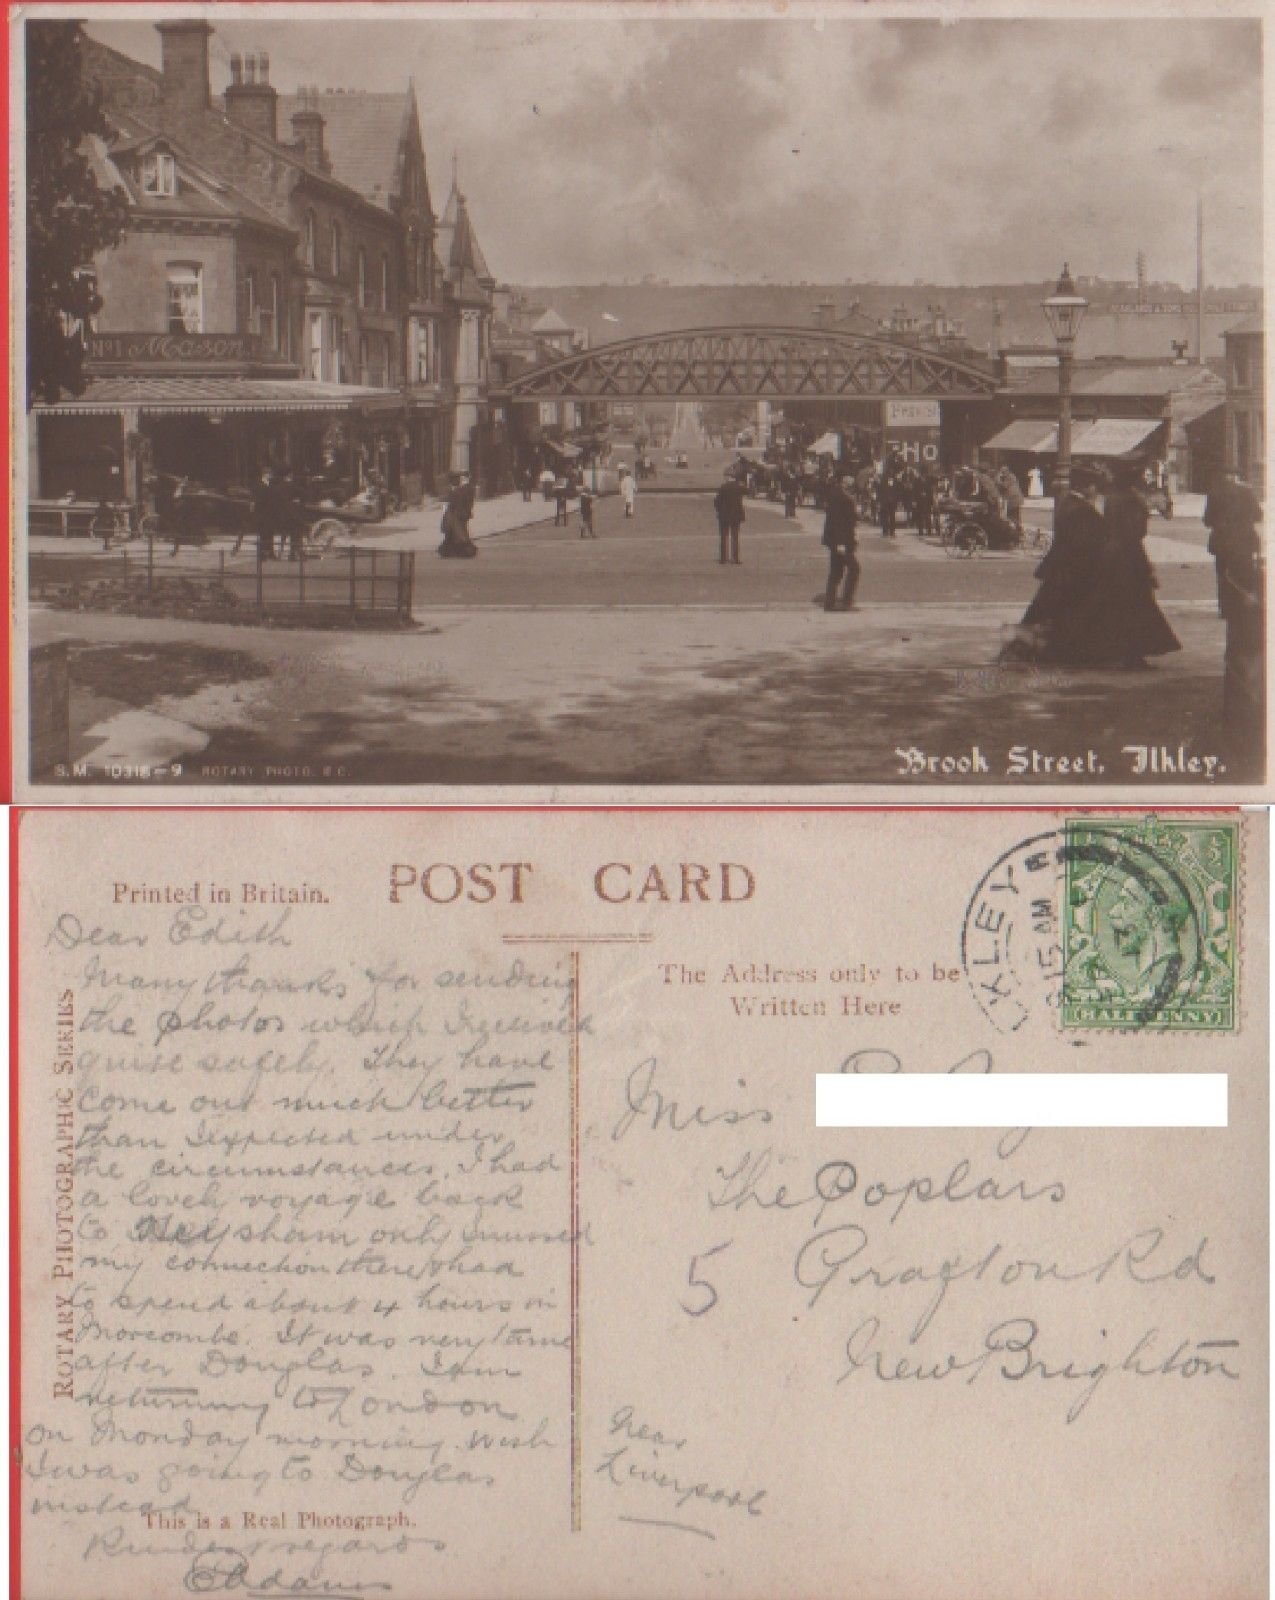 No 1 Mason
HO
S.M. 10318-9 ROTARY PHOTO. E.C.
Brook Street, Ilkley.
Printed in Britain.
POST CARD
ROTARY PHOTOGRAPHIC SERIES
The Address only to be
Written Here
ILKLEY
15 AM
HALFPENNY
Dear Edith
Many thanks for sending
the photos which I received
quite safely. They have
come out much better
than I expected under
the circumstances. I had
a lovely voyage back
to Heysham only missed
my connection there & had
to spend about 4 hours in
Morcombe. It was very tame
after Douglas. I am
returning to London
on Monday morning. wish
I was going to Douglas
instead
This is a Real Photograph.
Kindest regards
Adams
Miss
The Poplars
5 Grafton Rd
New Brighton
Near
Liverpool